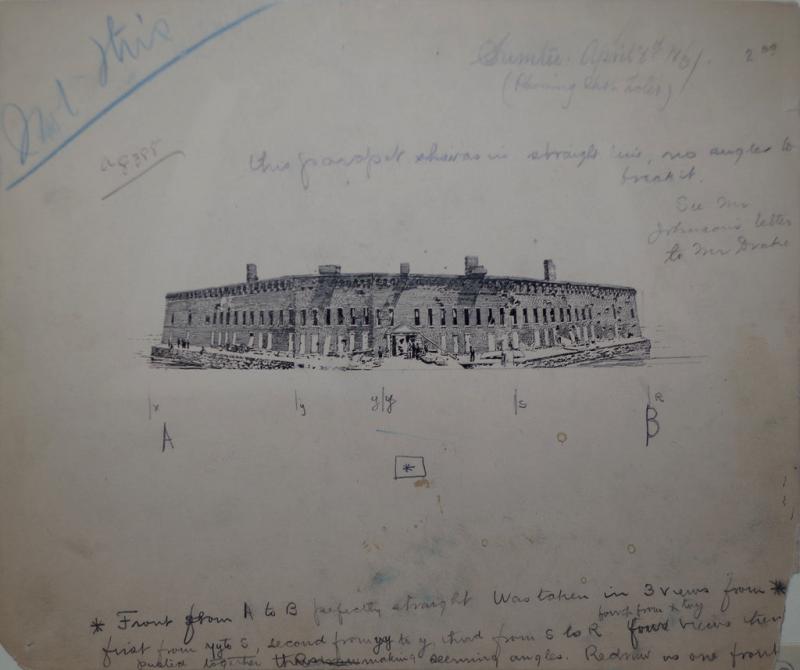 Not this
Sumter. April
2
(Showing Shot holes)
a 8385
this parapet shows in straight line, no angles to
break it.
See Mr
Johnson's letter
to Mr Drake
x y y y s R
A B
*
* Front from A to B perfectly straight Was taken in 3 views from *
fourth from x to y
first from yy to S, second from yy to y, third from S to R four views then
pasted together making seeming angles. Redraw as one front